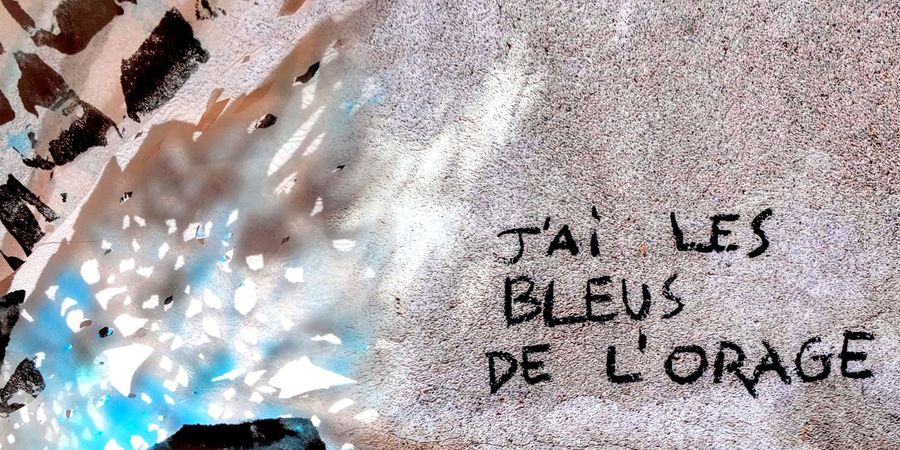 J'Ai LES
BLEUS
DE L'ORAGE